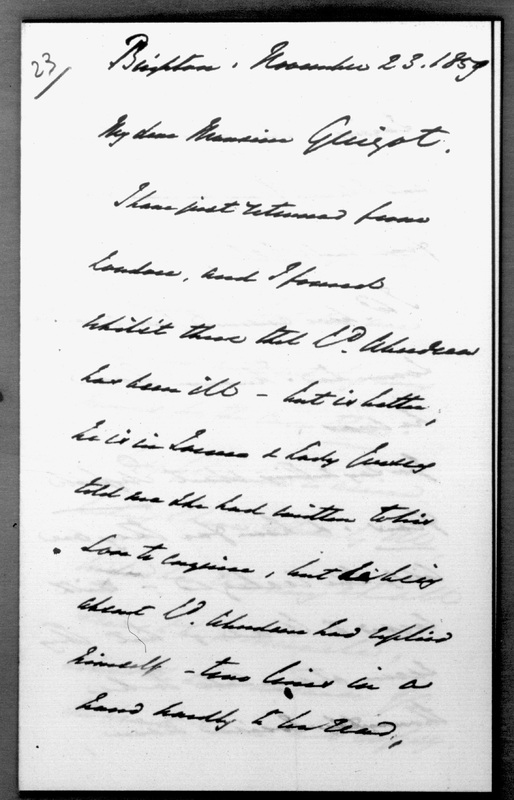 23/
Brighton. November 23. 1859
My dear Monsieur Guizot.
I have just returned from
London, and I found
whilst there that Ld. Aberdeen
has been ill – but is better,
he is in Town & Lady
told me she had written to his
Son to enquire, but
Ld. Aberdeen had replied
himself – two lines in a
hand hardly to be read,